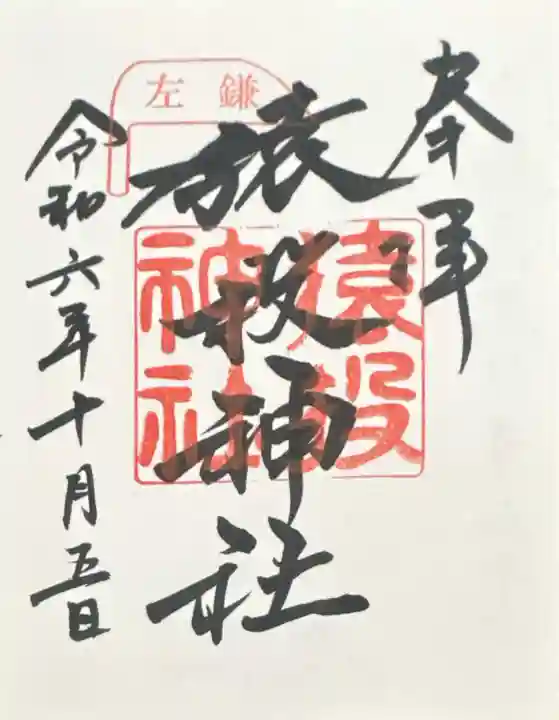 奉拝
猿投神社
左鎌
猿投神社
令和六年十月五日